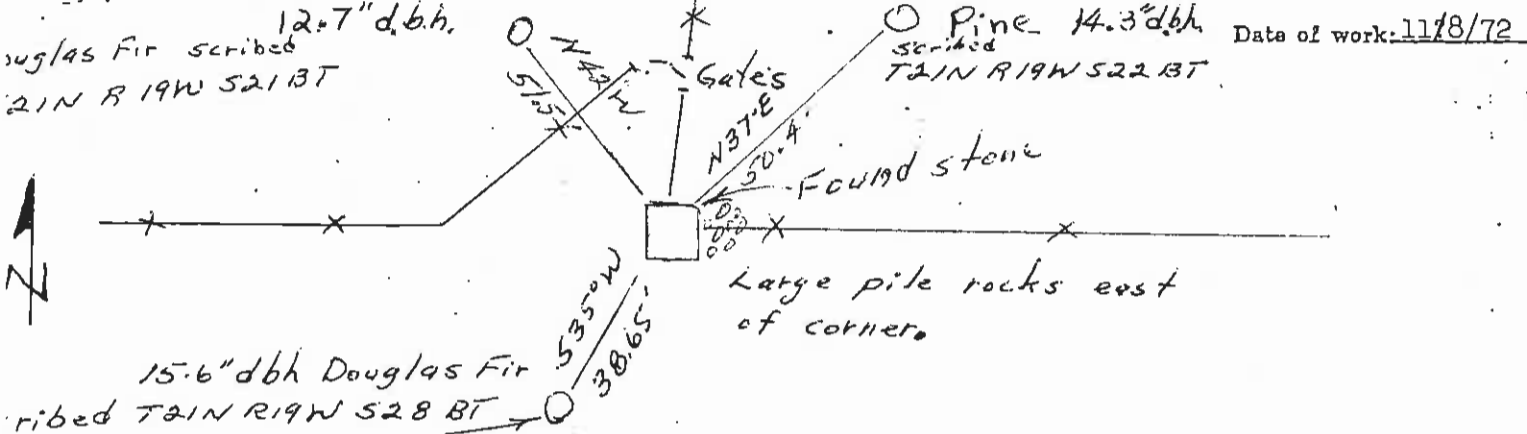 12.7" d.b.h.
ouglas Fir scribed
21N R 19W S21 BT
N42W
51.5'
Gates
Pine 14.3" dbh
scribed
T21N R19W S22 BT
Date of work: 11/8/72
N37°E
50.4'
Found stone
N
Large pile rocks east
of corner.
S35°W
38.65'
15.6" dbh Douglas Fir
ribed T21N R19W S28 BT